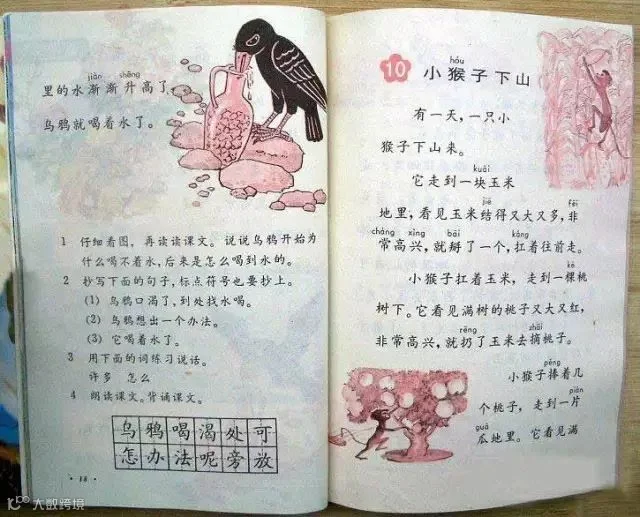 jiàn shēng
里的水渐渐升高了
乌鸦就喝着水了。
1 仔细看图，再读读课文。说说乌鸦开始为
什么喝不着水，后来是怎么喝到水的。
2 抄写下面的句子，标点符号也要抄上。
(1) 乌鸦口渴了，到处找水喝。
(2) 乌鸦想出一个办法。
(3) 它喝着水了。
3 用下面的词练习说话。
许多 怎么
4 朗读课文。背诵课文。
乌鸦喝渴处可
怎办法呢旁放
·18·
hóu
10 小猴子下山
有一天，一只小
猴子下山来。
kuài
它走到一块玉米
jiē fēi
地里，看见玉米结得又大又多，非
cháng xìng bāi káng
常高兴，就掰了一个，扛着往前走。
kē
小猴子扛着玉米，走到一棵桃
树下。它看见满树的桃子又大又红，
rēng zhāi
非常高兴，就扔了玉米去摘桃子。
pěng
小猴子捧着几
piàn
个桃子，走到一片
guā
瓜地里。它看见满
大数跨境